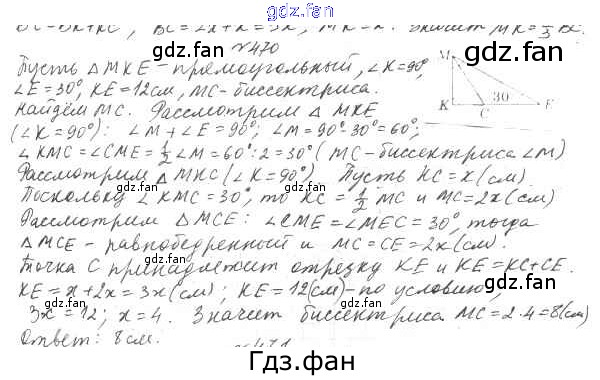 gdz.fan
BC=BK+KC, BC=2x+x=3x, MK=x. Значит MK=1/3 BC.
gdz.fan gdz.fan
№470
Пусть △MKE - прямоугольный, ∠K=90°,
∠E=30°, KE=12см, MC-биссектриса.
Найдём MC. Рассмотрим △ MKE
(∠K=90°): ∠M+∠E=90°; ∠M=90°-30°=60°;
∠KMC=∠CME=1/2∠M=60°:2=30° (MC-биссектриса ∠M)
Рассмотрим △MKC (∠K=90°) Пусть KC=x(см)
Поскольку ∠KMC=30°, то KC=1/2 MC и MC=2x(см)
Рассмотрим △MCE: ∠CME=∠MEC=30°, тогда
△MCE - равнобедренный и MC=CE=2x(см).
Точка C принадлежит отрезку KE и KE=KC+CE.
KE=x+2x=3x(см); KE=12(см)-по условию,
3x=12; x=4. Значит биссектриса MC=2·4=8(см)
Ответ: 8см.
№471
M
K
C
30
E
gdz.fan gdz.fan
gdz.fan gdz.fan
gdz.fan gdz.fan
gdz.fan gdz.fan
Гдз.фан